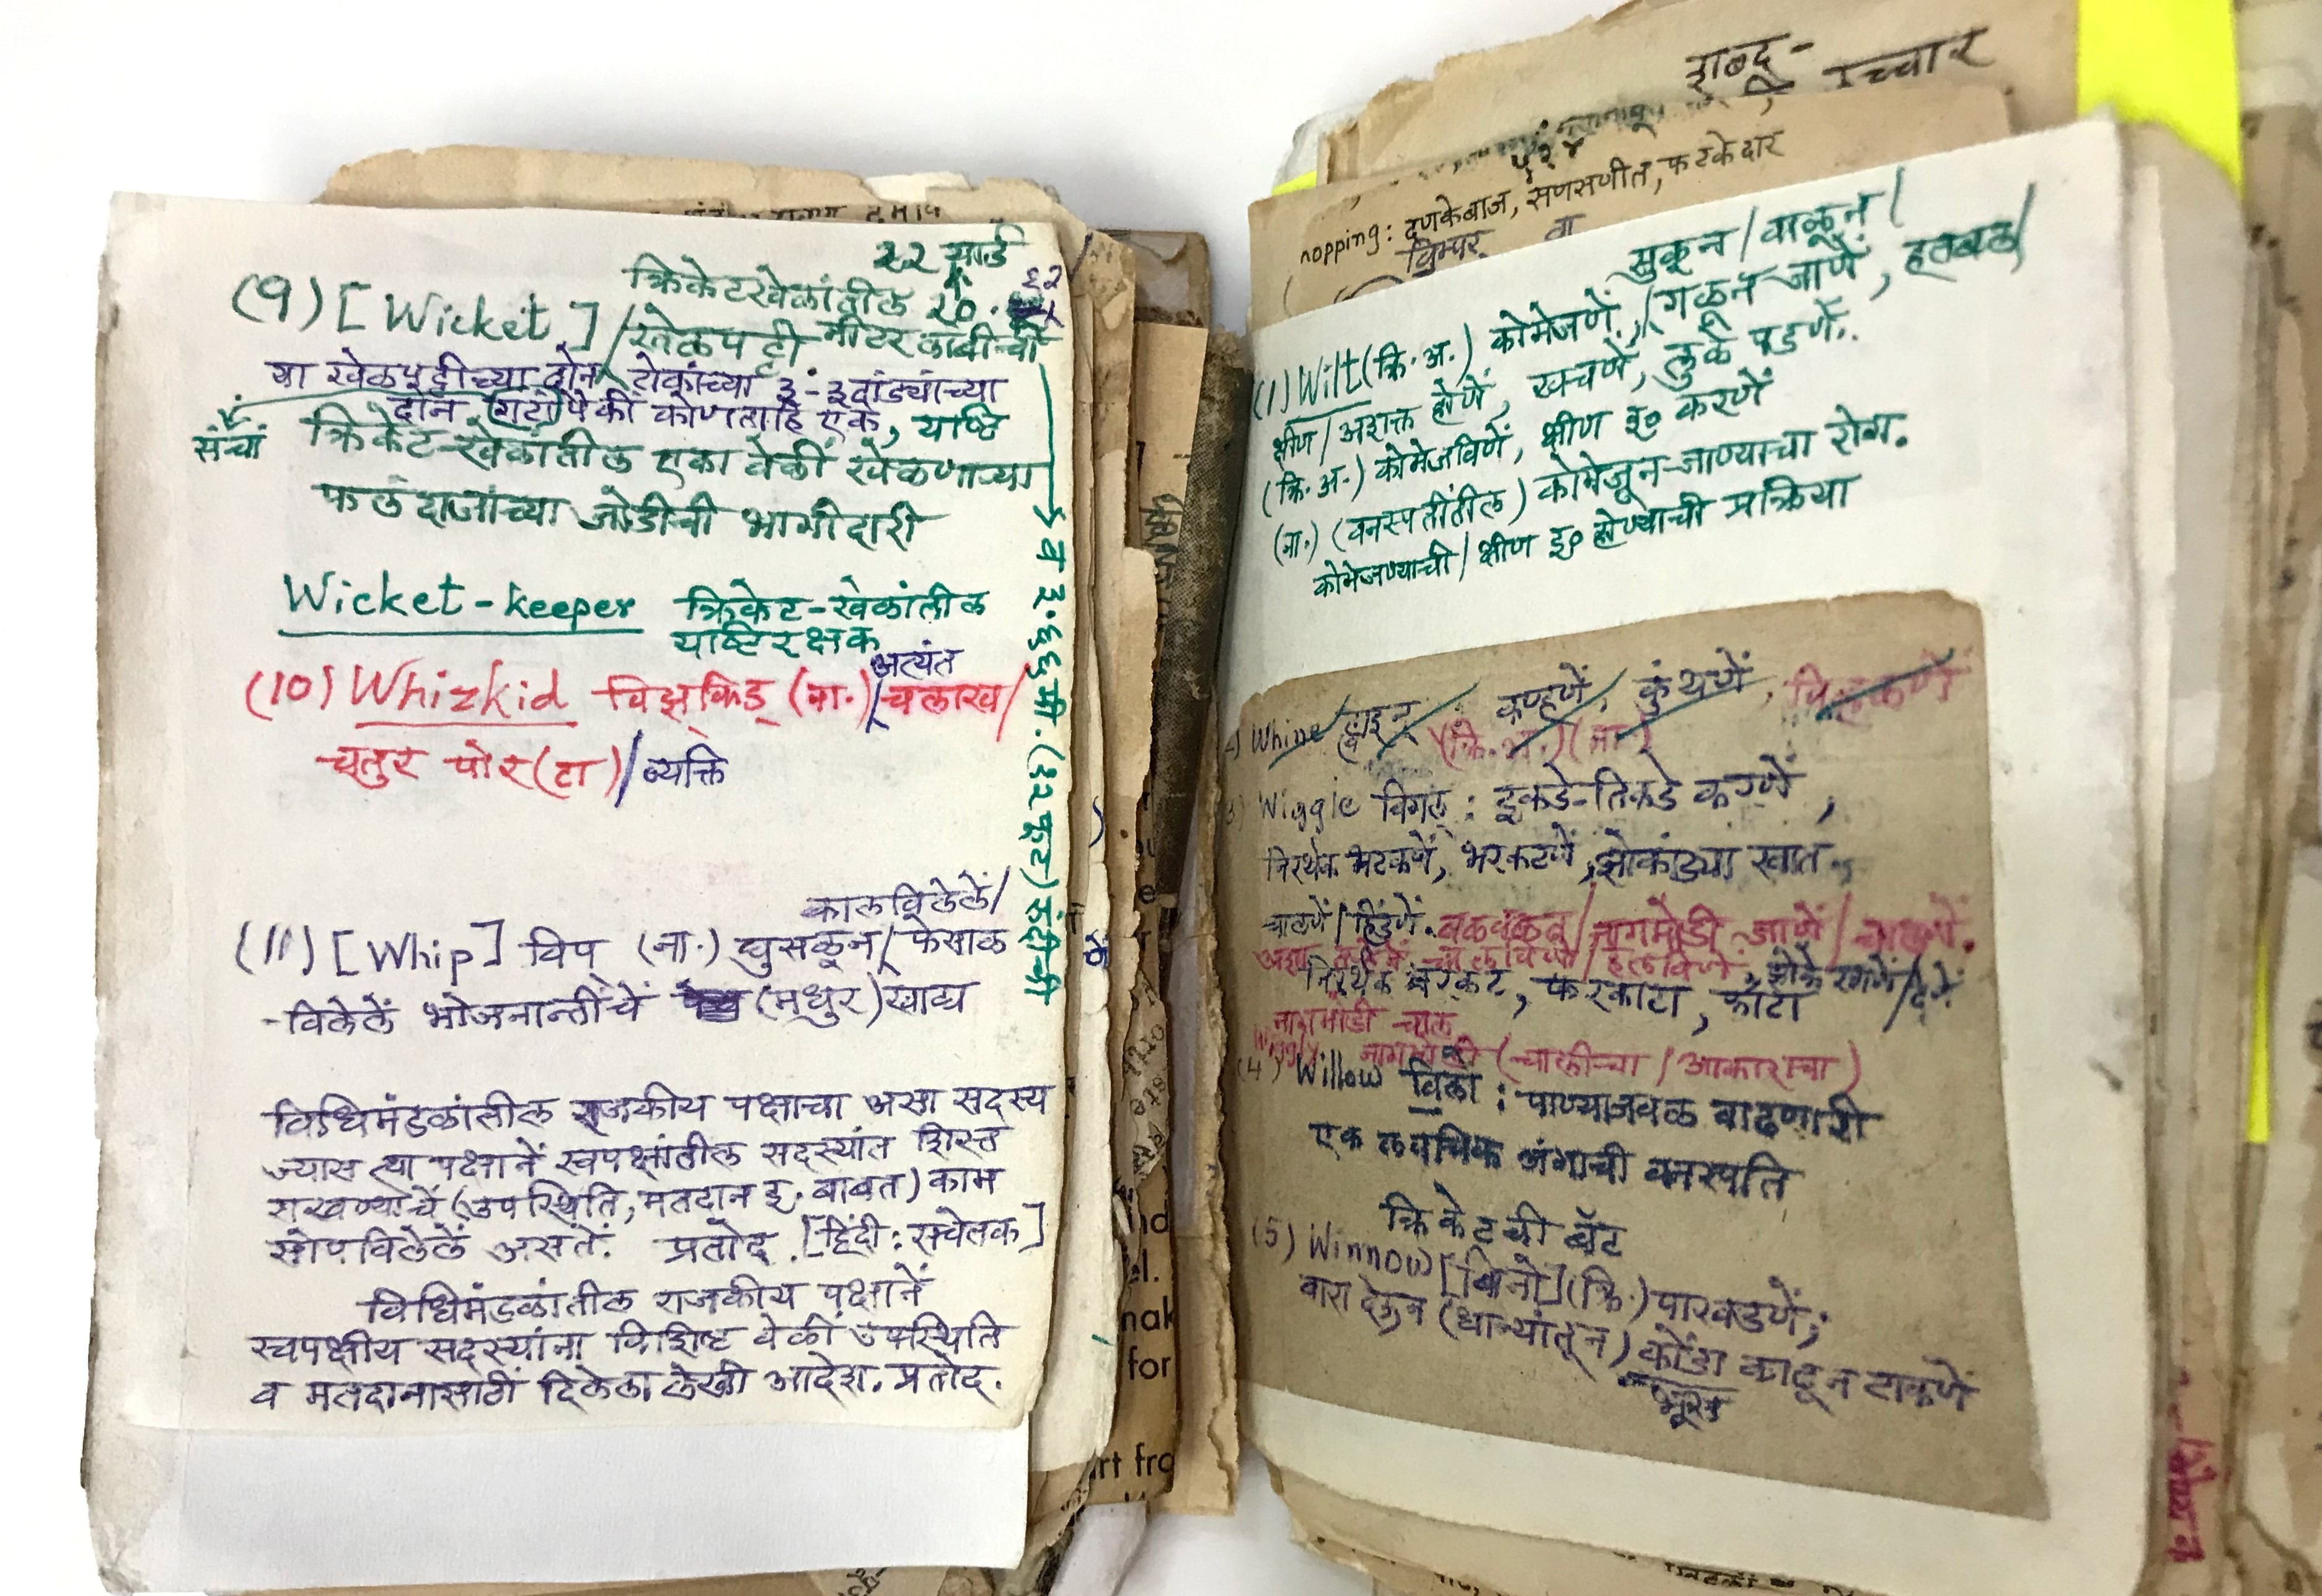 २२ यार्ड
(9) [Wicket] / क्रिकेटखेळांतील २०.१२
खेळपट्टी मीटर लांबीची
या खेळपट्टीच्या दोन टोकांच्या ३-३ दांड्यांच्या
दोन पैकी कोणताहि एक, यष्टि
संचां
क्रिकेट-खेळांतील एका वेळीं खेळणाऱ्या
फलंदाजांच्या जोडीची भागीदारी
व ३.६६ मी. (१२ फूट) रुंदीची
Wicket-keeper क्रिकेट-खेळांतील
यष्टिरक्षक
अत्यंत
(10) Whizkid विझ्किड् (ना.) / चलाख /
चतुर पोर(टा) / व्यक्ति
कालविलेलें /
(11) [Whip] विप् (ना.) घुसळून / फेसाळ
-विलेलें भोजनान्तींचें (मधुर) खाद्य
विधिमंडळांतील राजकीय पक्षाचा असा सदस्य
ज्यास त्या पक्षानें स्वपक्षांतील सदस्यांत शिस्त
राखण्याचें (उपस्थिति, मतदान इ. बाबत) काम
सोपविलेलें असतें. प्रतोद. [हिंदी: सचेतक]
विधिमंडळांतील राजकीय पक्षानें
स्वपक्षीय सदस्यांना विशिष्ट वेळीं उपस्थिति
व मतदानासाठीं दिलेला लेखी आदेश. प्रतोद.
शब्द-
उच्चार
५२४
nopping: दणकेबाज, सणसणीत, फटकेदार
सुकून / वाळून /
(1) Wilt (क्रि. अ.) कोमेजणें, / गळून जाणें, हतबल /
क्षीण / अशक्त होणें, खचणें, लुळे पडणें.
(क्रि. अ.) कोमेजविणें, क्षीण इ० करणें
(ना.) (वनस्पतींतील) कोमेजून-जाण्याचा रोग.
कोमेजण्याची / क्षीण इ० होण्याची प्रक्रिया
Whine व्हाइन् कण्हणें, कुंथणें,
(क्रि. अ.) (ना.)
3) Wiggle विगल् : इकडे-तिकडे करणें,
निरर्थक भटकणें, भरकटणें, झोकांड्या खात
चालणें / हिंडणें. वळवळत / नागमोडी जाणें / चालणें.
निरर्थक भरकट, फरकाटा, फांटा
नागमोडी चाल
Wiggly नागमोडी (चालीचा / आकाराचा)
(4) Willow विलो : पाण्याजवळ वाढणारी
एक लवचिक अंगाची वनस्पति
क्रिकेटची बॅट
(5) Winnow [विनो] (क्रि.) पाखडणें;
वारा देऊन (धान्यांतून) कोंडा काढून टाकणें
भूस